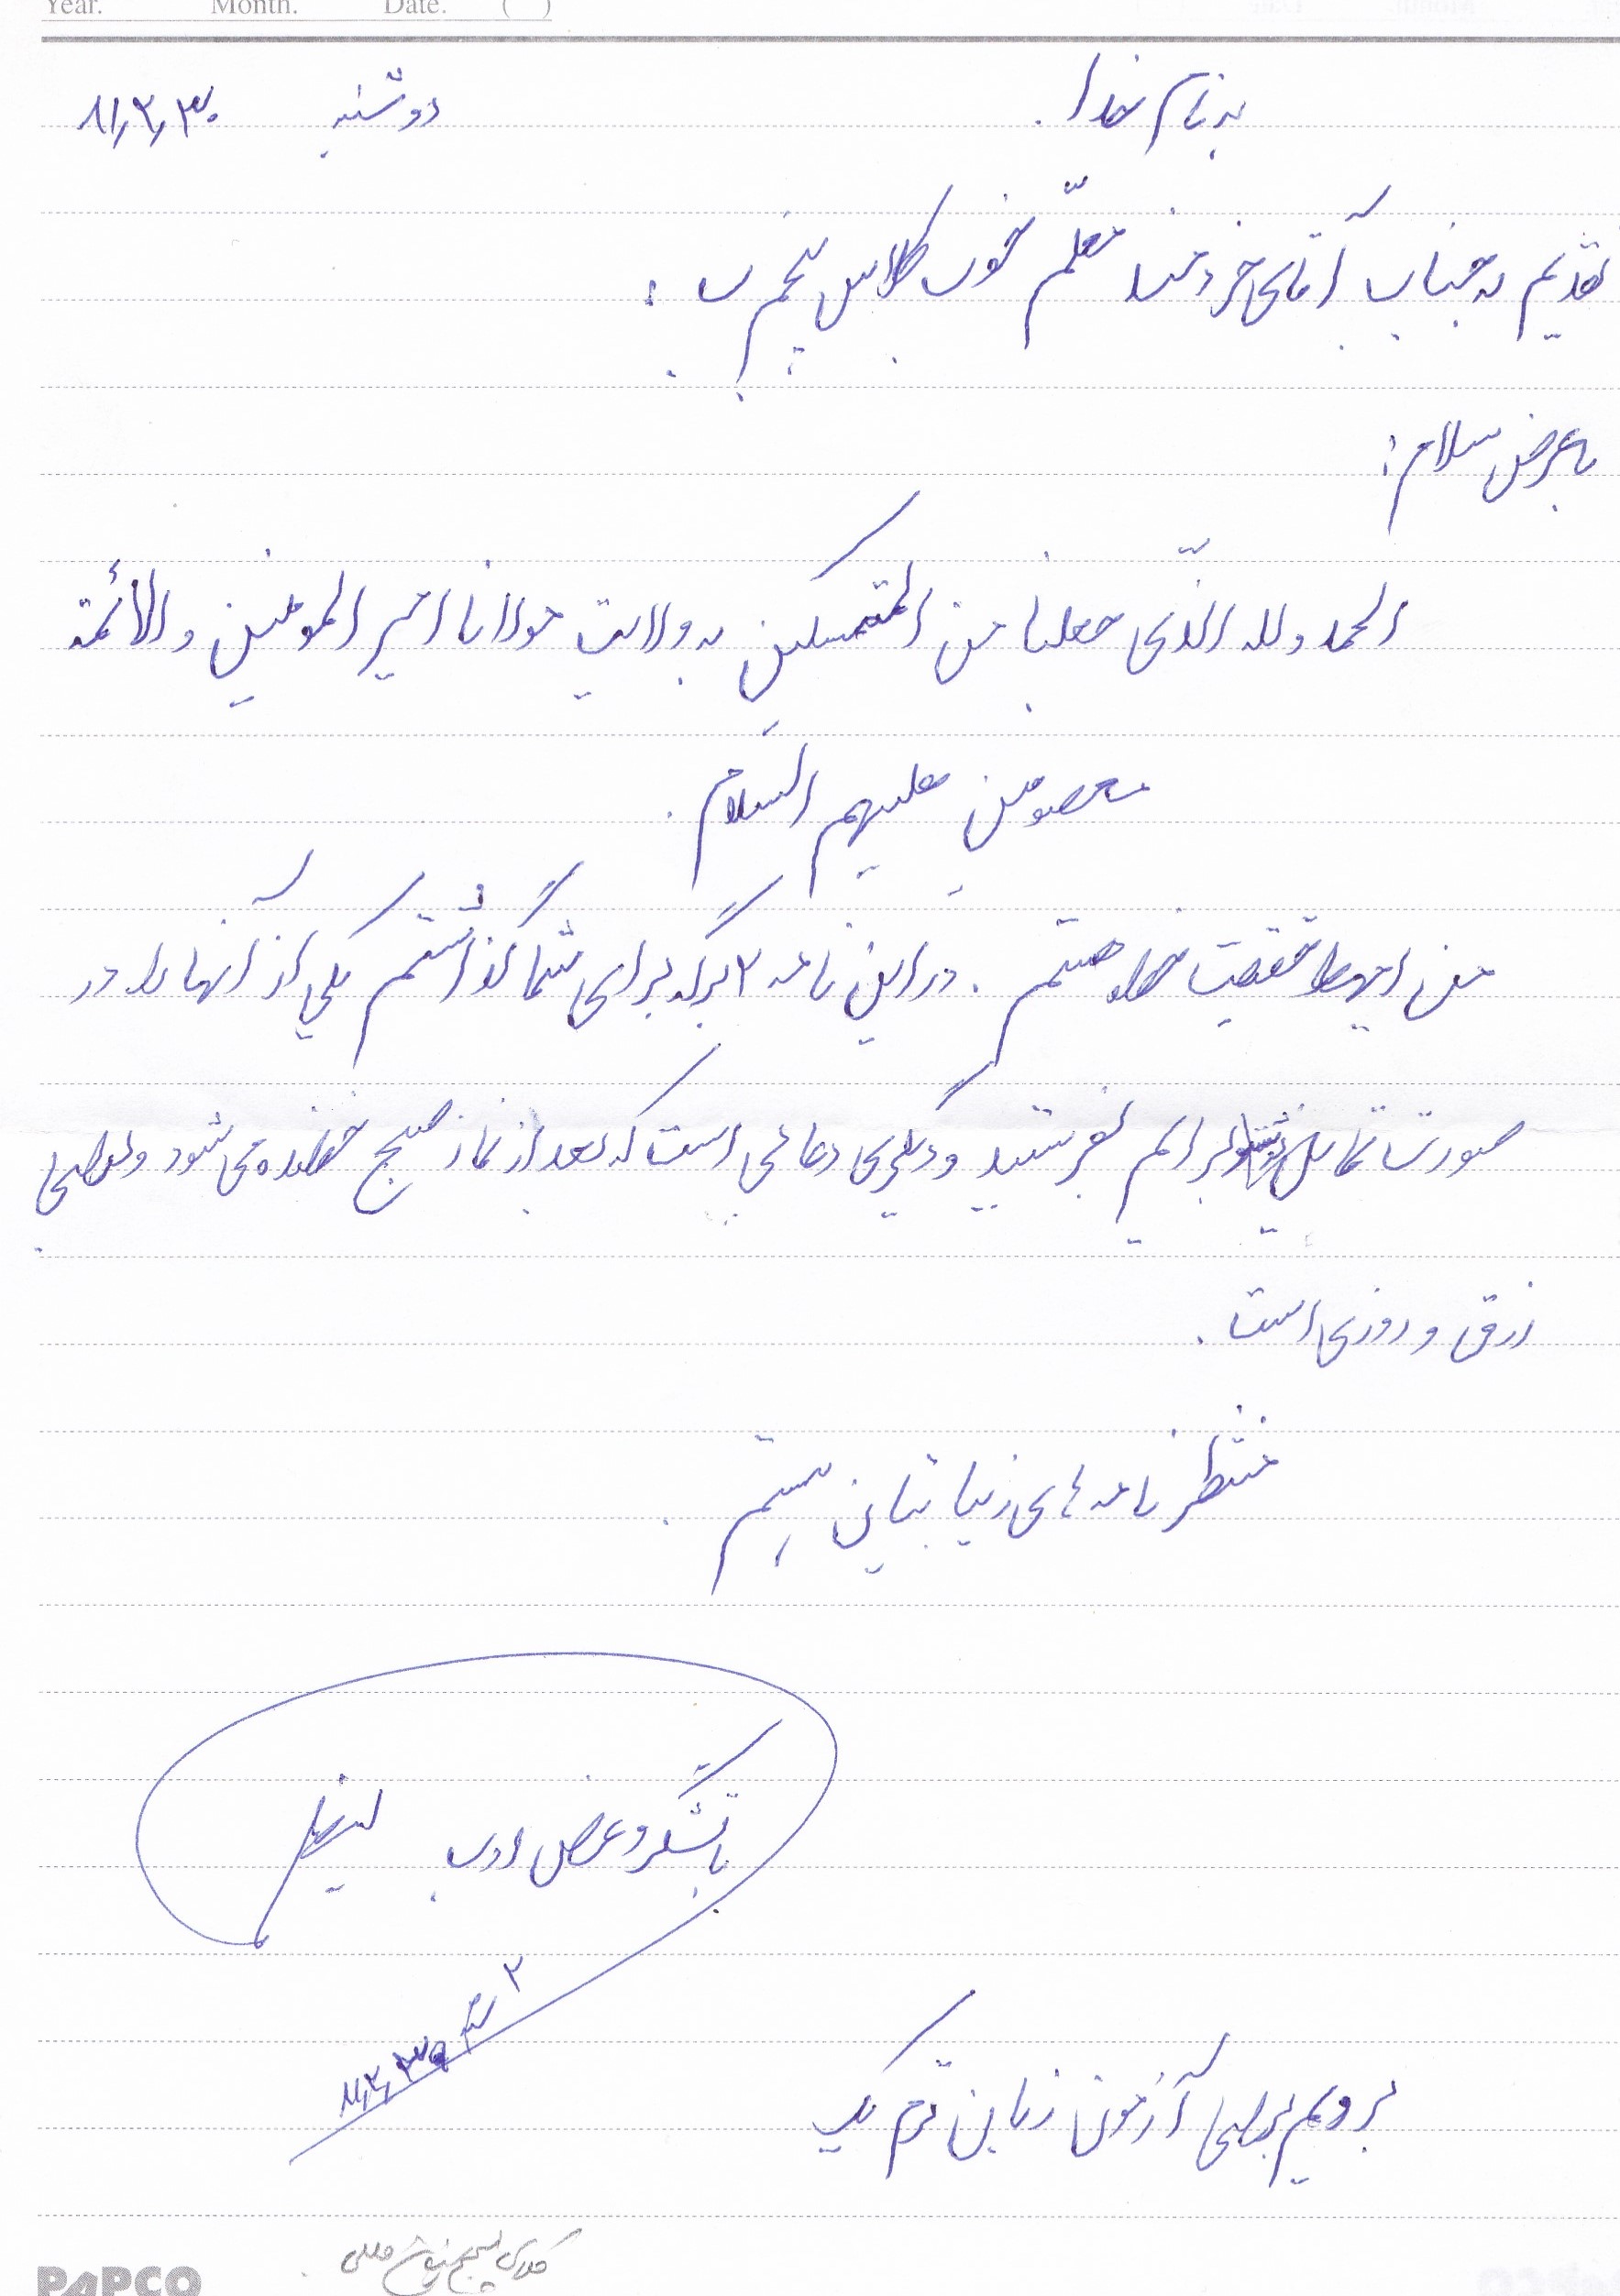 Year. Month. Date. ( )
به نام خدا . دوشنبه ۸۱٫۳٫۳۰
تقدیم به جناب آقای خردمند معلّم خوب کلاس پنجم ب :
با عرض سلام :
الحمد و لله الذّی جعلنا من المتمسکین به ولایت مولانا امیر المومنین و الائمّه
معصومین علیهم السّلام .
من هستم . در این نامه ۲ برگه برای شما گذاشتم یکی از آنها را در
صورت تمایل برایم بفرستید و دیگری دعائی است که بعد از نماز صبح خوانده می شود و برای
رزق و روزی است .
منتظر نامه های زیبایتان هستم .
با تشکر و عرض ادب
۲
۸۱٫۳٫۳۰
برویم برای آزمون زبان ترم یک
PAPCO